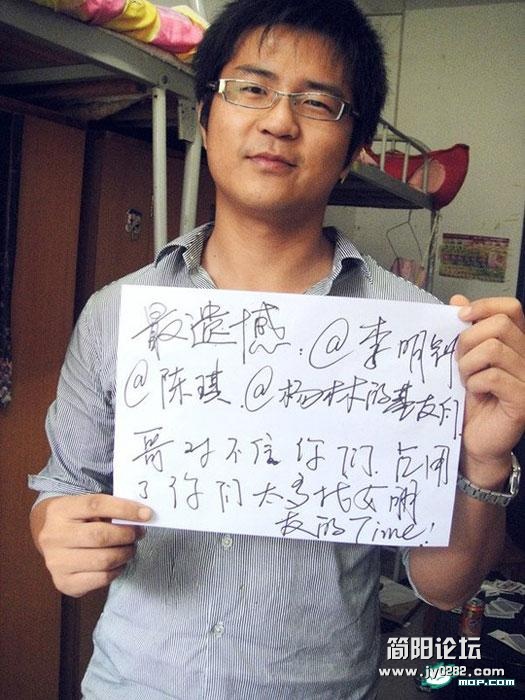 最遗憾：@李明钟
@陈琪.@杨林的基友们.
哥对不住你们.占用
了你们太多找女朋
友的Time!
简阳论坛
www.jy0282.com
MOP.COM